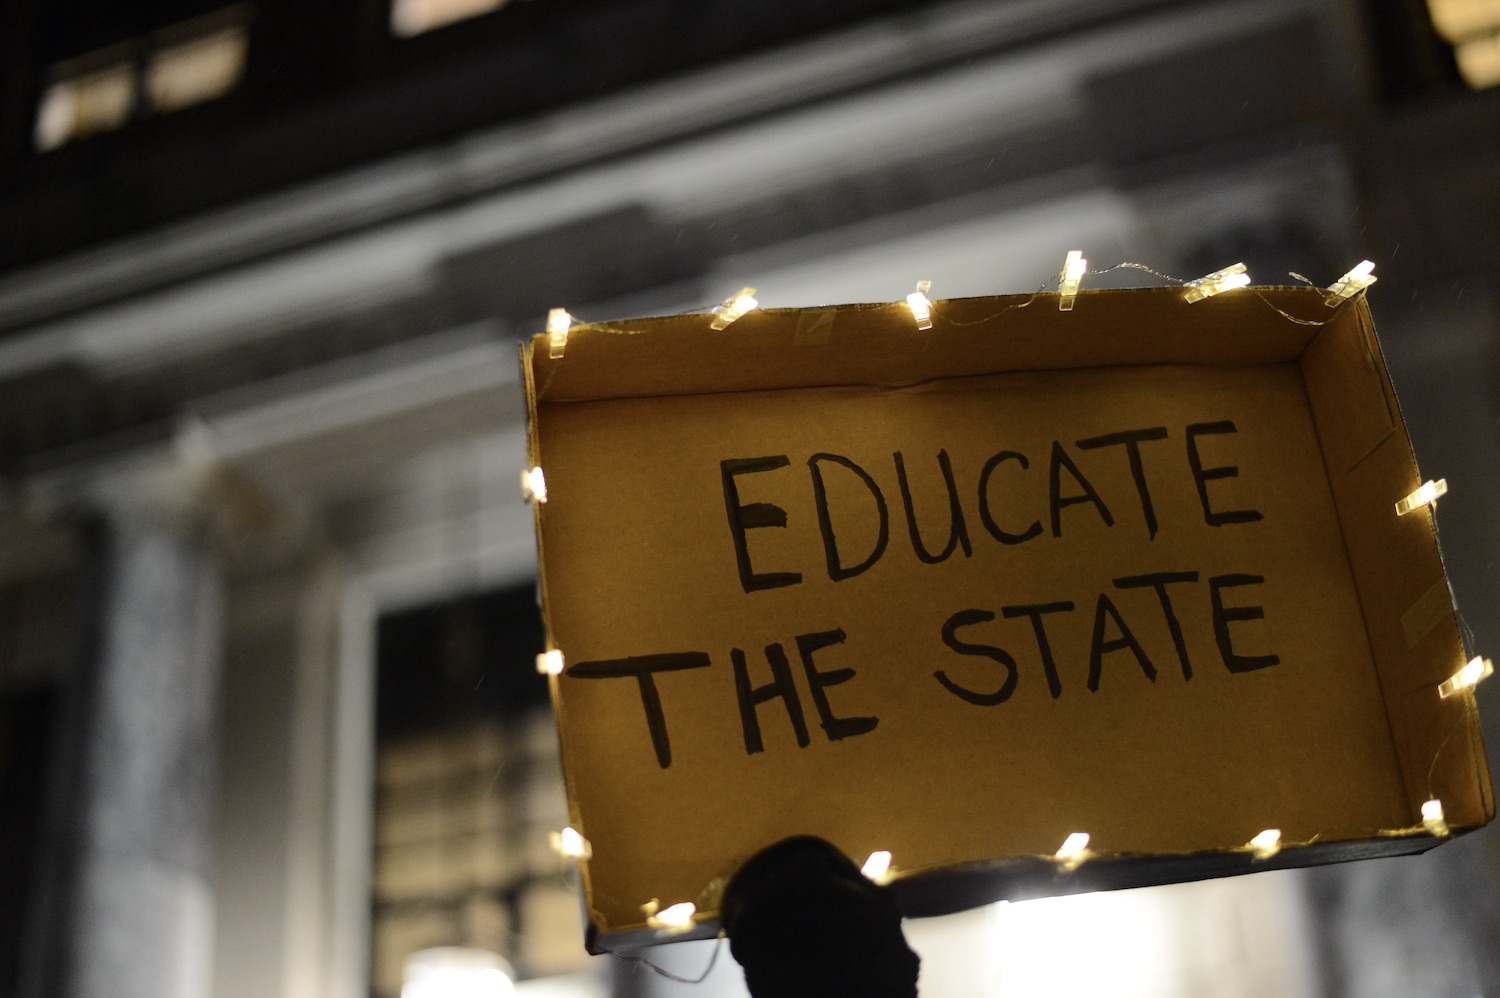 EDUCATE
THE STATE